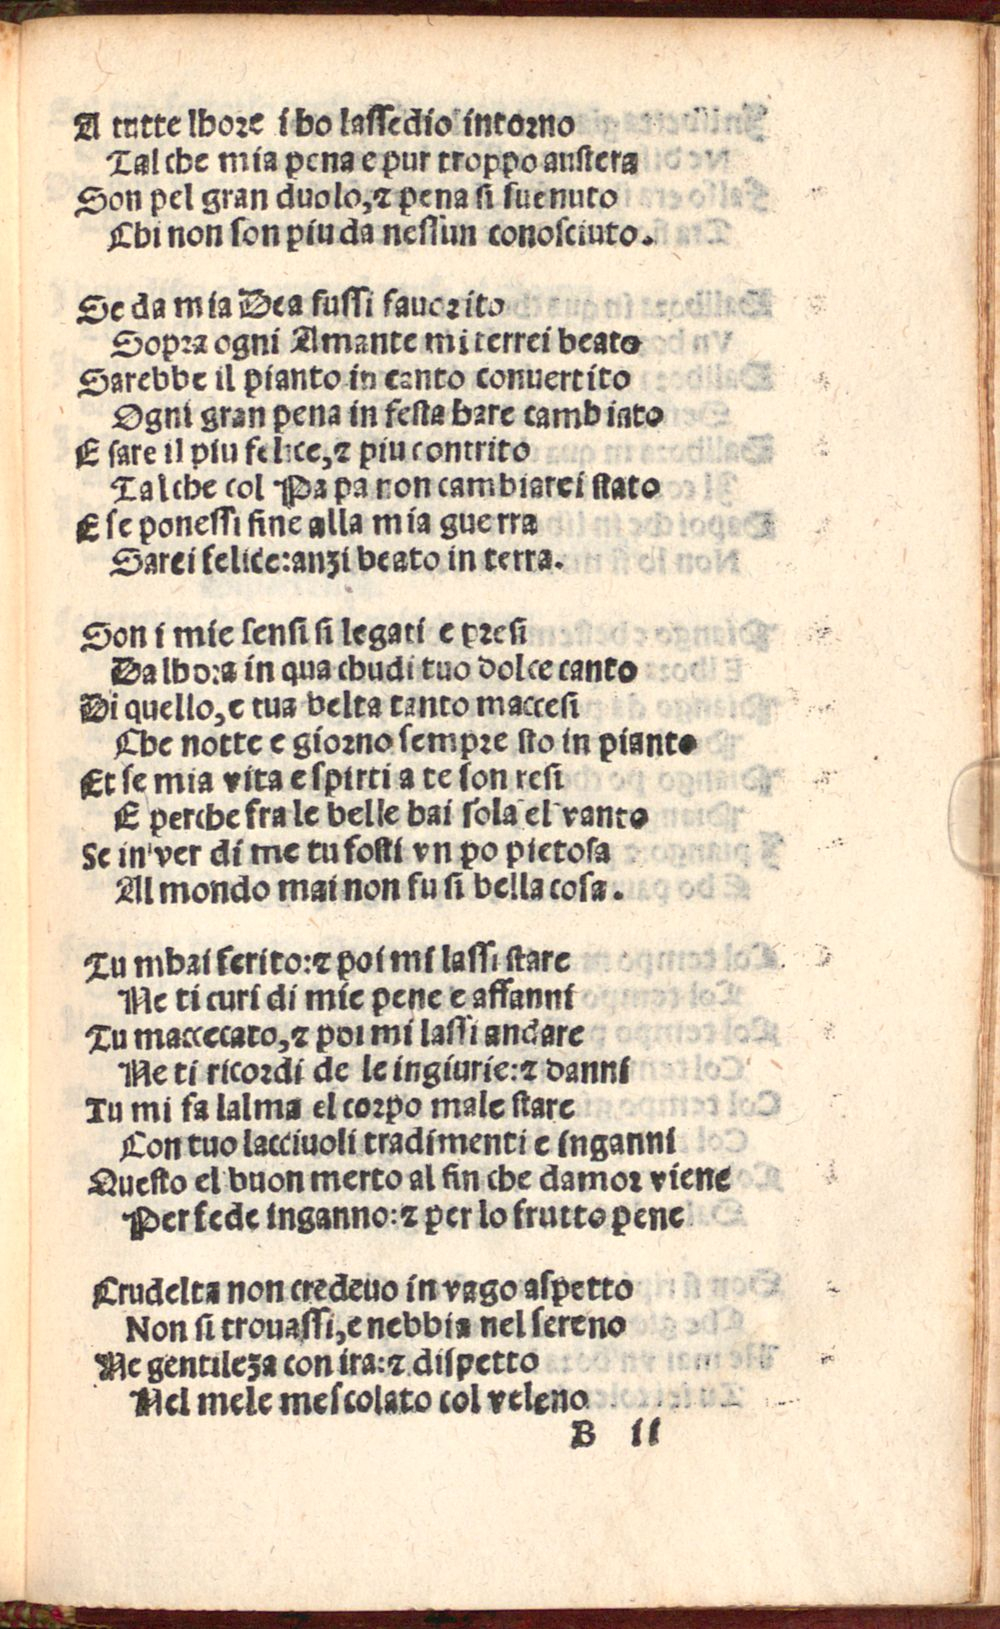 A tutte lhore i ho lassedio intorno
Tal che mia pena e pur troppo austera
Son pel gran duolo, & pena si suenuto
Chi non son piu da nessun conosciuto.
Se da mia Dea fussi fauorito
Sopra ogni Amante mi terrei beato
Sarebbe il pianto in canto conuertito
Ogni gran pena in festa hare cambiato
E sare il piu felice, & piu contrito
Tal che col Papa non cambiarei stato
E se ponessi fine alla mia guerra
Sarei felice: anzi beato in terra.
Son i mie sensi si legati e presi
Da lhora in qua chudi tuo dolce canto
Di quello, e tua belta tanto maccesi
Che notte e giorno sempre sto in pianto
Et se mia vita e spirti a te son resi
E perche fra le belle hai sola el vanto
Se in ver di me tu fosti vn po pietosa
Al mondo mai non fu si bella cosa.
Tu mhai ferito: & poi mi lassi stare
Ne ti curi di mie pene e affanni
Tu maccecato, & poi mi lassi andare
Ne ti ricordi de le ingiurie: & danni
Tu mi fa lalma el corpo male stare
Con tuo lacciuoli tradimenti e inganni
Questo el buon merto al fin che damor viene
Per fede inganno: & per lo frutto pene
Crudelta non credeuo in vago aspetto
Non si trouassi, e nebbia nel sereno
Ne gentileza con ira: & dispetto
Nel mele mescolato col veleno
B ii